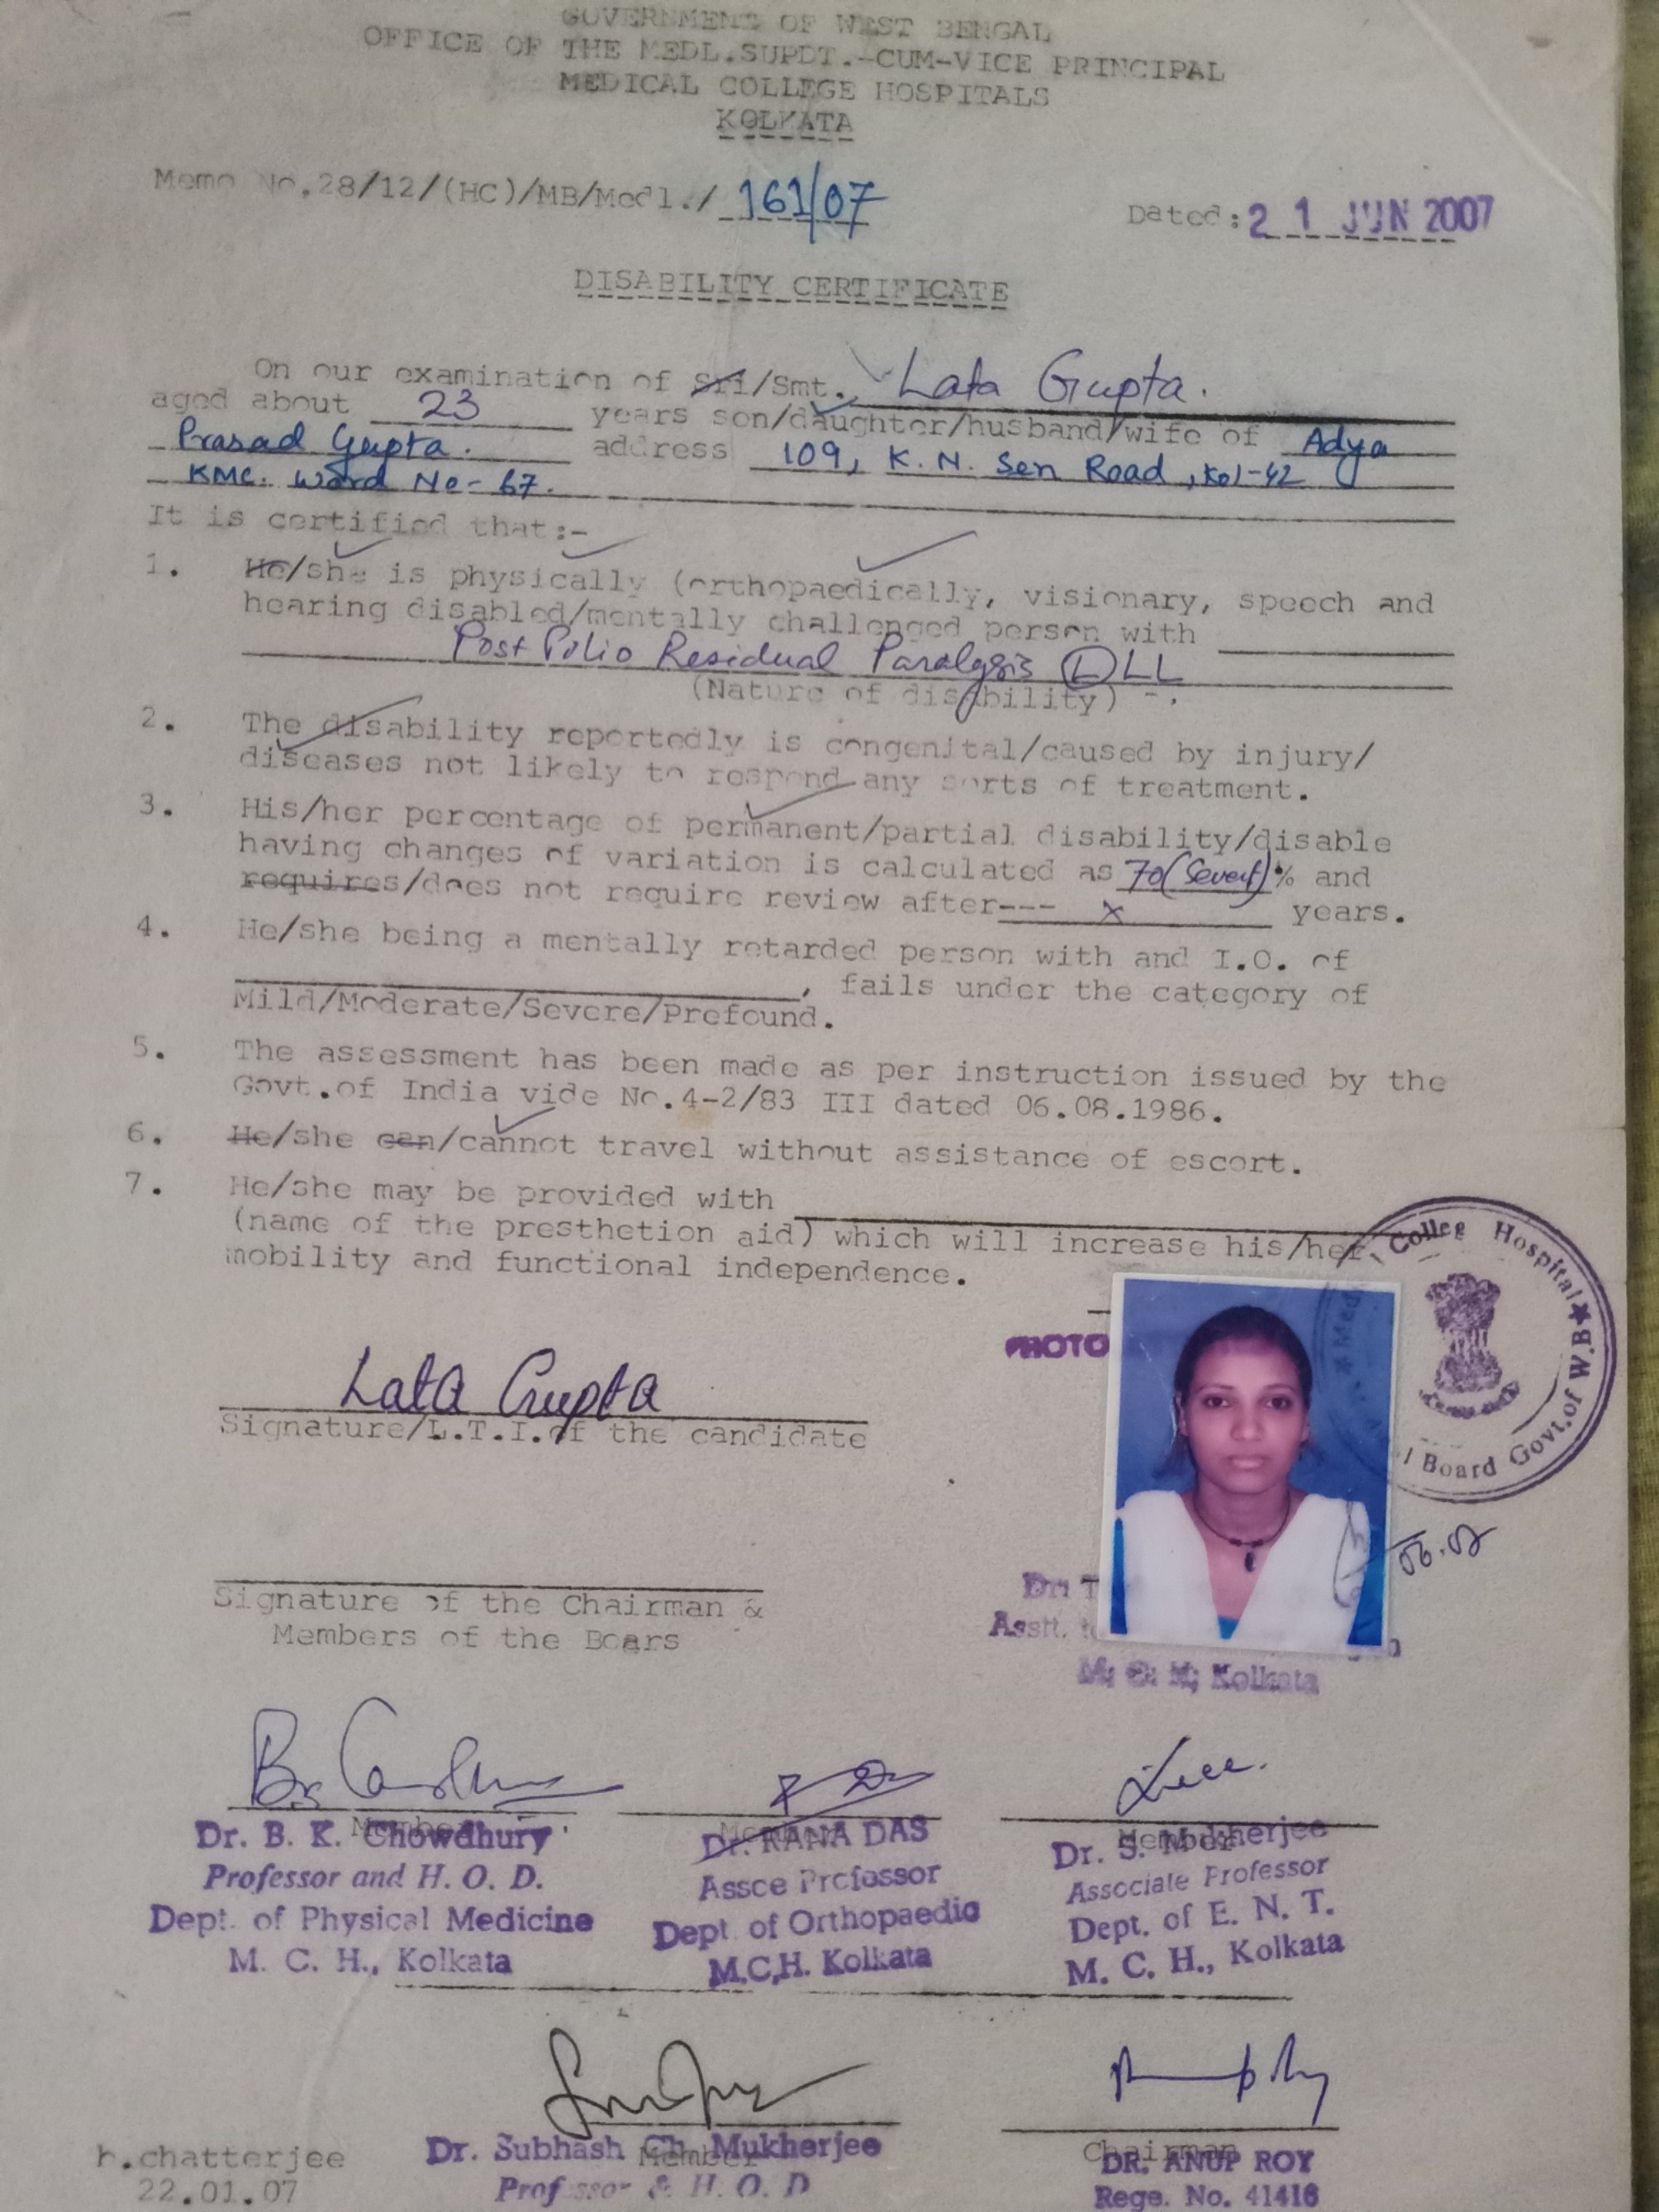 GOVERNMENT OF WEST BENGAL
OFFICE OF THE MEDL.SUPDT.-CUM-VICE PRINCIPAL
MEDICAL COLLEGE HOSPITALS
KOLKATA
Memo No.28/12/(HC)/MB/Medl./ 161/07
Dated: 21 JUN 2007
DISABILITY CERTIFICATE
On our examination of Sri/Smt. Lata Gupta.
aged about 23 years son/daughter/husband/wife of Adya
Prasad Gupta. address 109, K. N. Sen Road, Kol-42
KMC. Word No- 67.
It is certified that:-
1. He/she is physically (orthopaedically, visionary, speech and
hearing disabled/mentally challenged person with
Post Polio Residual Paralysis (L) LL
(Nature of disability)
2. The disability reportedly is congenital/caused by injury/
diseases not likely to respond any sorts of treatment.
3. His/her percentage of permanent/partial disability/disable
having changes of variation is calculated as 70 % and
requires/does not require review after--- x years.
4. He/she being a mentally retarded person with and I.O. of
, fails under the category of
Mild/Moderate/Severe/Profound.
5. The assessment has been made as per instruction issued by the
Govt.of India vide No.4-2/83 III dated 06.08.1986.
6. He/she can/cannot travel without assistance of escort.
7. He/she may be provided with
(name of the presthetion aid) which will increase his/her
mobility and functional independence.
Colleg Hospital ★ Board Govt.of W.B
PHOTO
Lata Gupta
Signature/L.T.I.of the candidate
06.07
Signature of the Chairman &
Members of the Boars
Dr. T
Asstt.
Kolkata
Member
Dr. B. K. Chowdhury
Professor and H. O. D.
Dept. of Physical Medicine
M. C. H., Kolkata
Member
Dr. RANA DAS
Assce Professor
Dept of Orthopaedic
M.C.H. Kolkata
Member
Dr. S. Mukherjee
Associate Professor
Dept. of E. N. T.
M. C. H., Kolkata
h.chatterjee
22.01.07
Member
Dr. Subhash Ch. Mukherjee
Professor & H. O. D
Chairman
DR. ANUP ROY
Rege. No. 41416